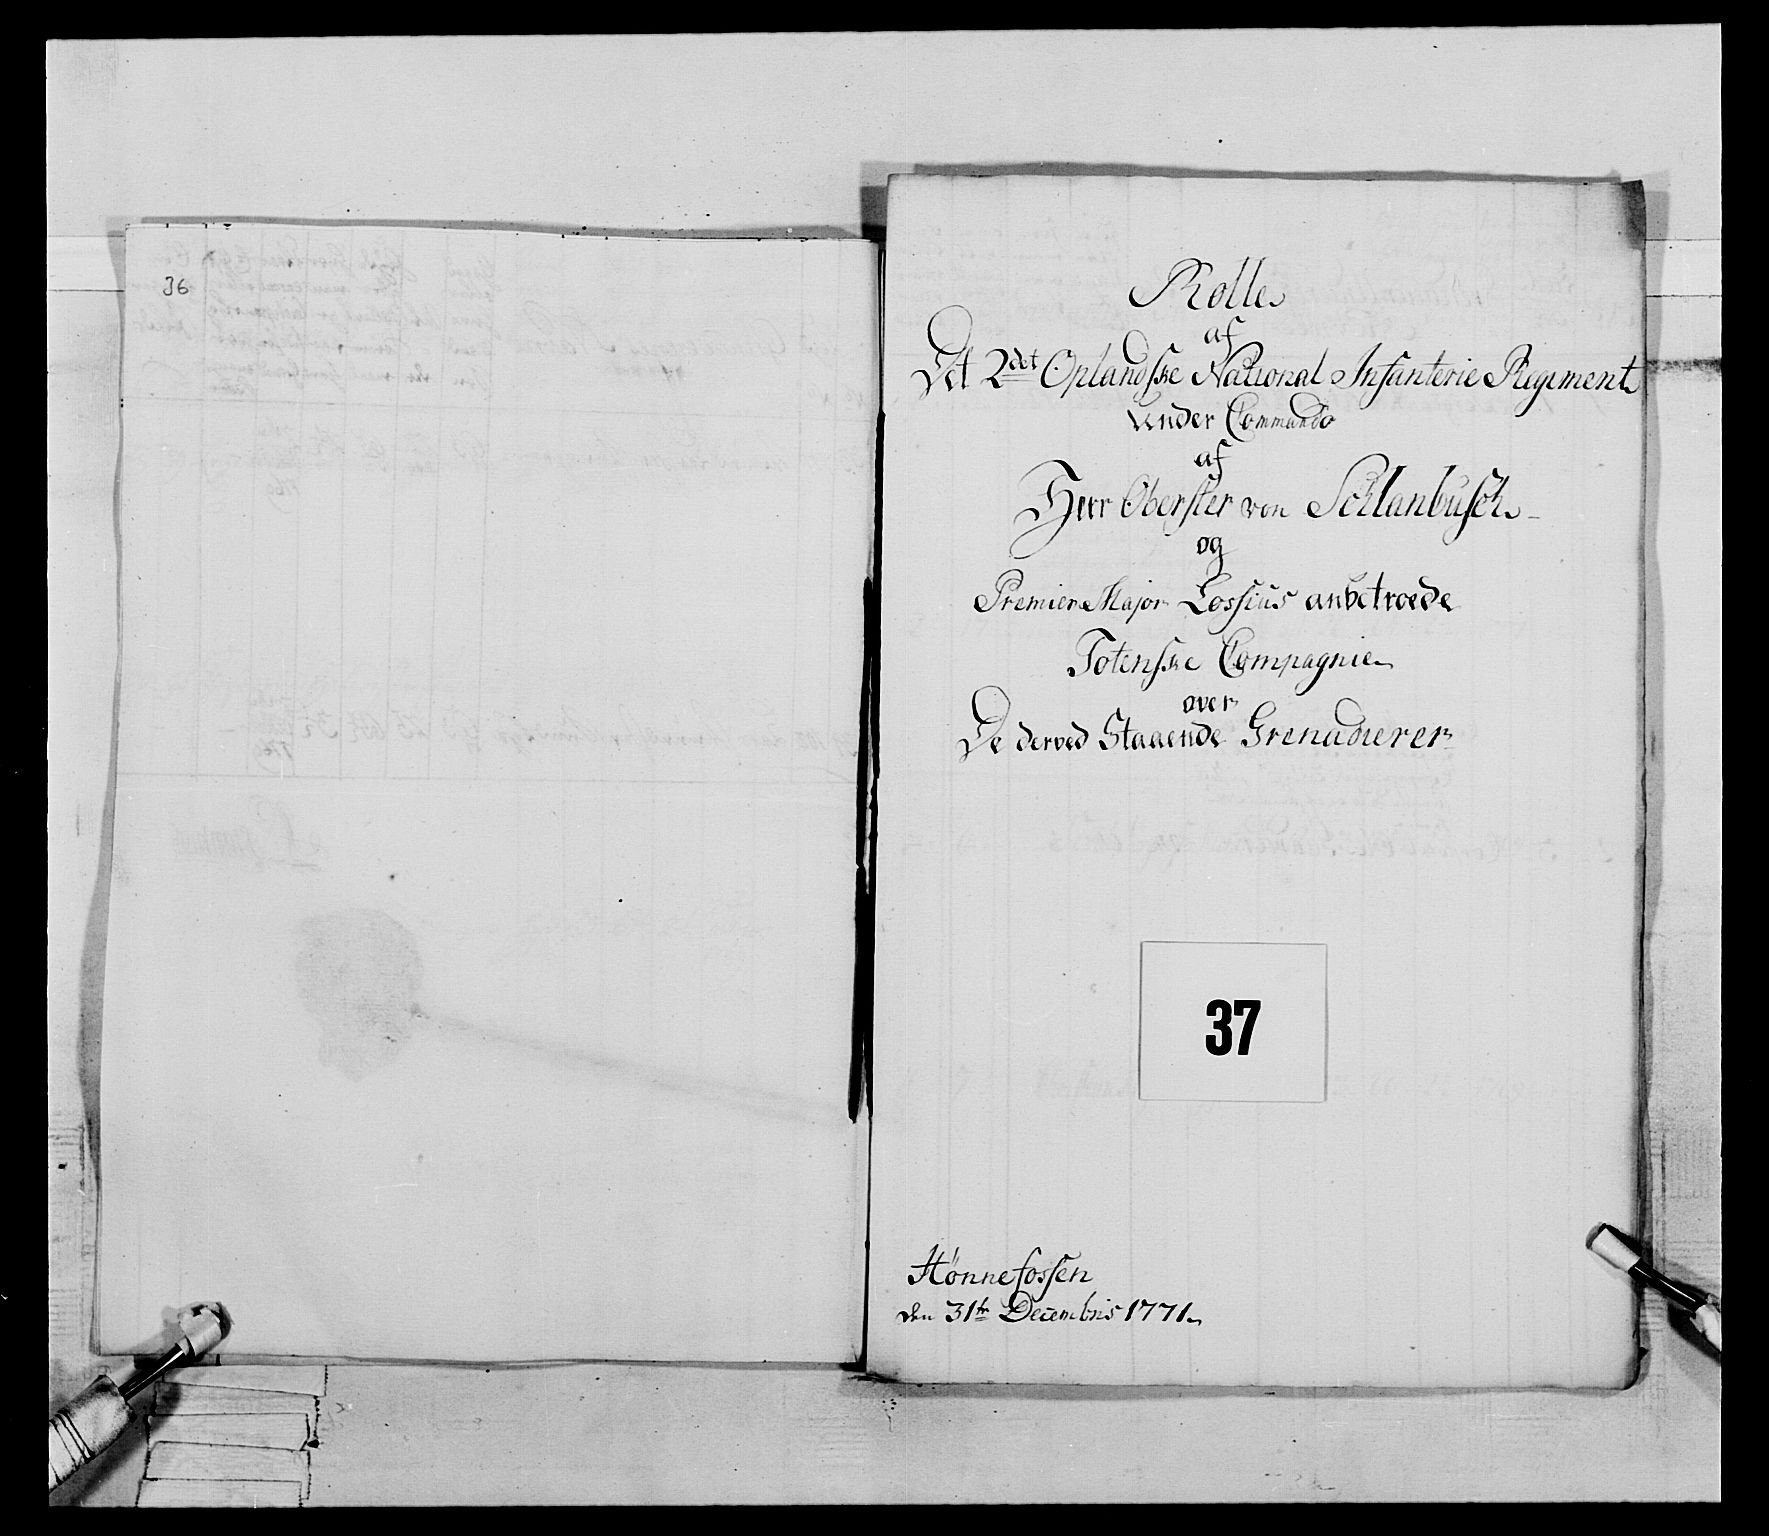 36
Rolle
af
Det 2det Oplandske National Infanterie Regiment
under Commando
af
Herr Oberster von Schlanbusch
og
Premier Major Lossius anbetroede
Totenske Compagnie
over
De derved Staaende Grenadierer
37
Hønnefossen
den 31te Decembris 1771